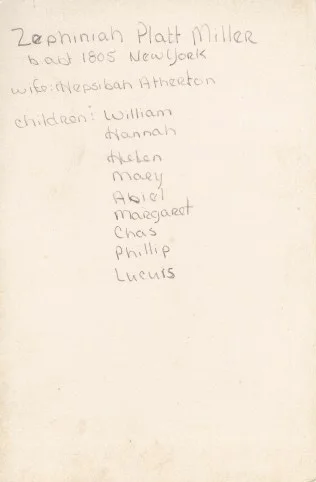 Zephiniah Platt Miller
b abt 1805 New York
wife: Hepsibah Atherton
children: William
Hannah
Helen
Mary
Abiel
Margaret
Chas
Phillip
Lucuis